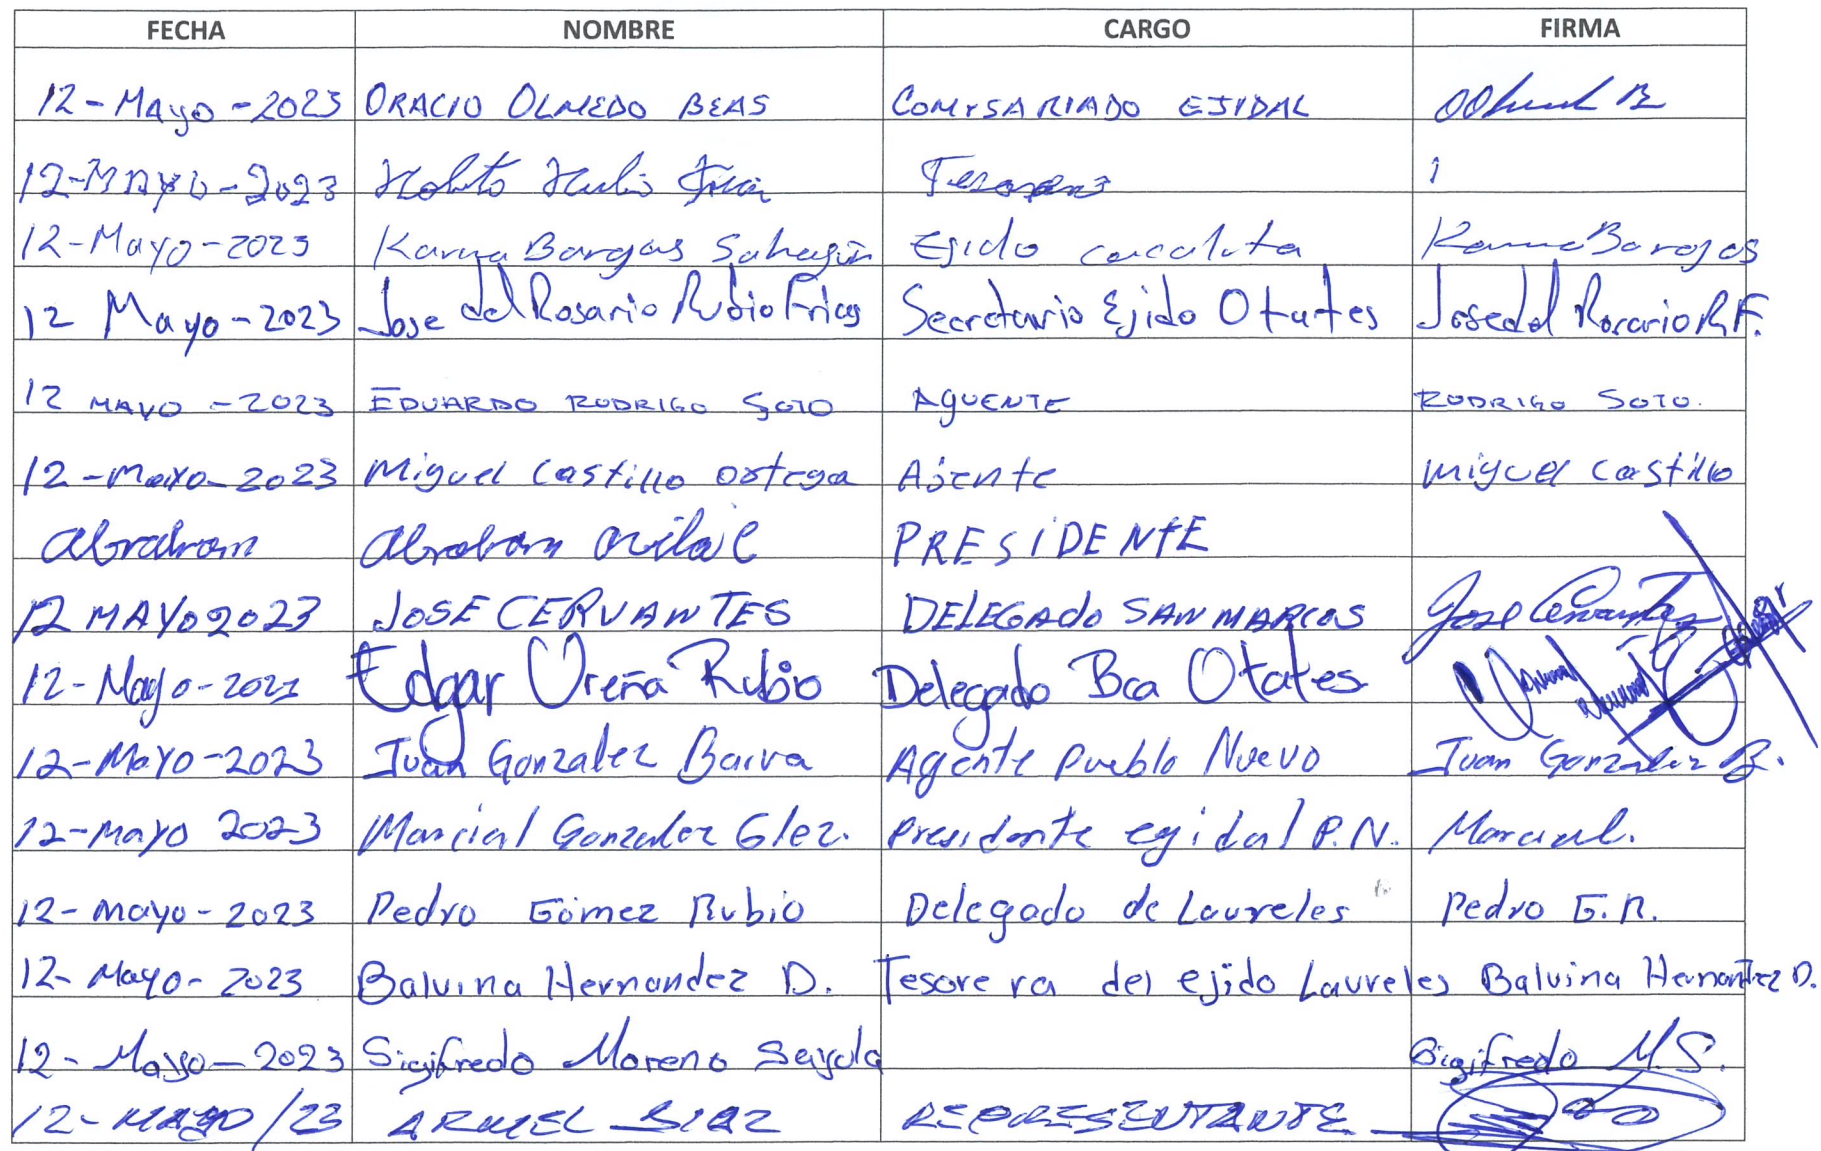 FECHA NOMBRE CARGO FIRMA
12-Mayo-2023 ORACIO OLMEDO BEAS COMYSARIADO EJIDAL
12-MAYO-2023
12-Mayo-2023 Karna Bargas Sahagún Egido cacaluta Bargas
12 Mayo-2023 Jose del Rosario Rubio Frias Secretario Ejido Otates Jose del Rosario R F.
12 MAYO-2023 EDUARDO RODRIGO SOTO AGUENTE RODRIGO SOTO.
12-Mayo-2023 Miguel Castillo ostega Ajente Miguel Castillo
Abraham Abraham PRESIDENTE
12 MAYO 2023 JOSE CERVANTES DELEGADO SAN MARCOS Jose Cervantes
12-Mayo-2023 Edgar Ureña Rubio Delegado Bca Otates
12-MAYO-2023 Juan Gonzalez Barva Agente Pueblo Nuevo Juan Gonzalez B.
12-Mayo 2023 Marcial Gonzalez Glez. Presidente egidal P.N. Marcial.
12-mayo-2023 Pedro Gómez Rubio Delegado de Laureles Pedro G.R.
12-Mayo-2023 Balvina Hernandez D. Tesorera del ejido Laureles Balvina Hernandez D.
12-Mayo-2023 Sigifredo Moreno Sayula Sigifredo M.S.
12-MAYO/23 ARMEL DIAZ REPRESENTANTE